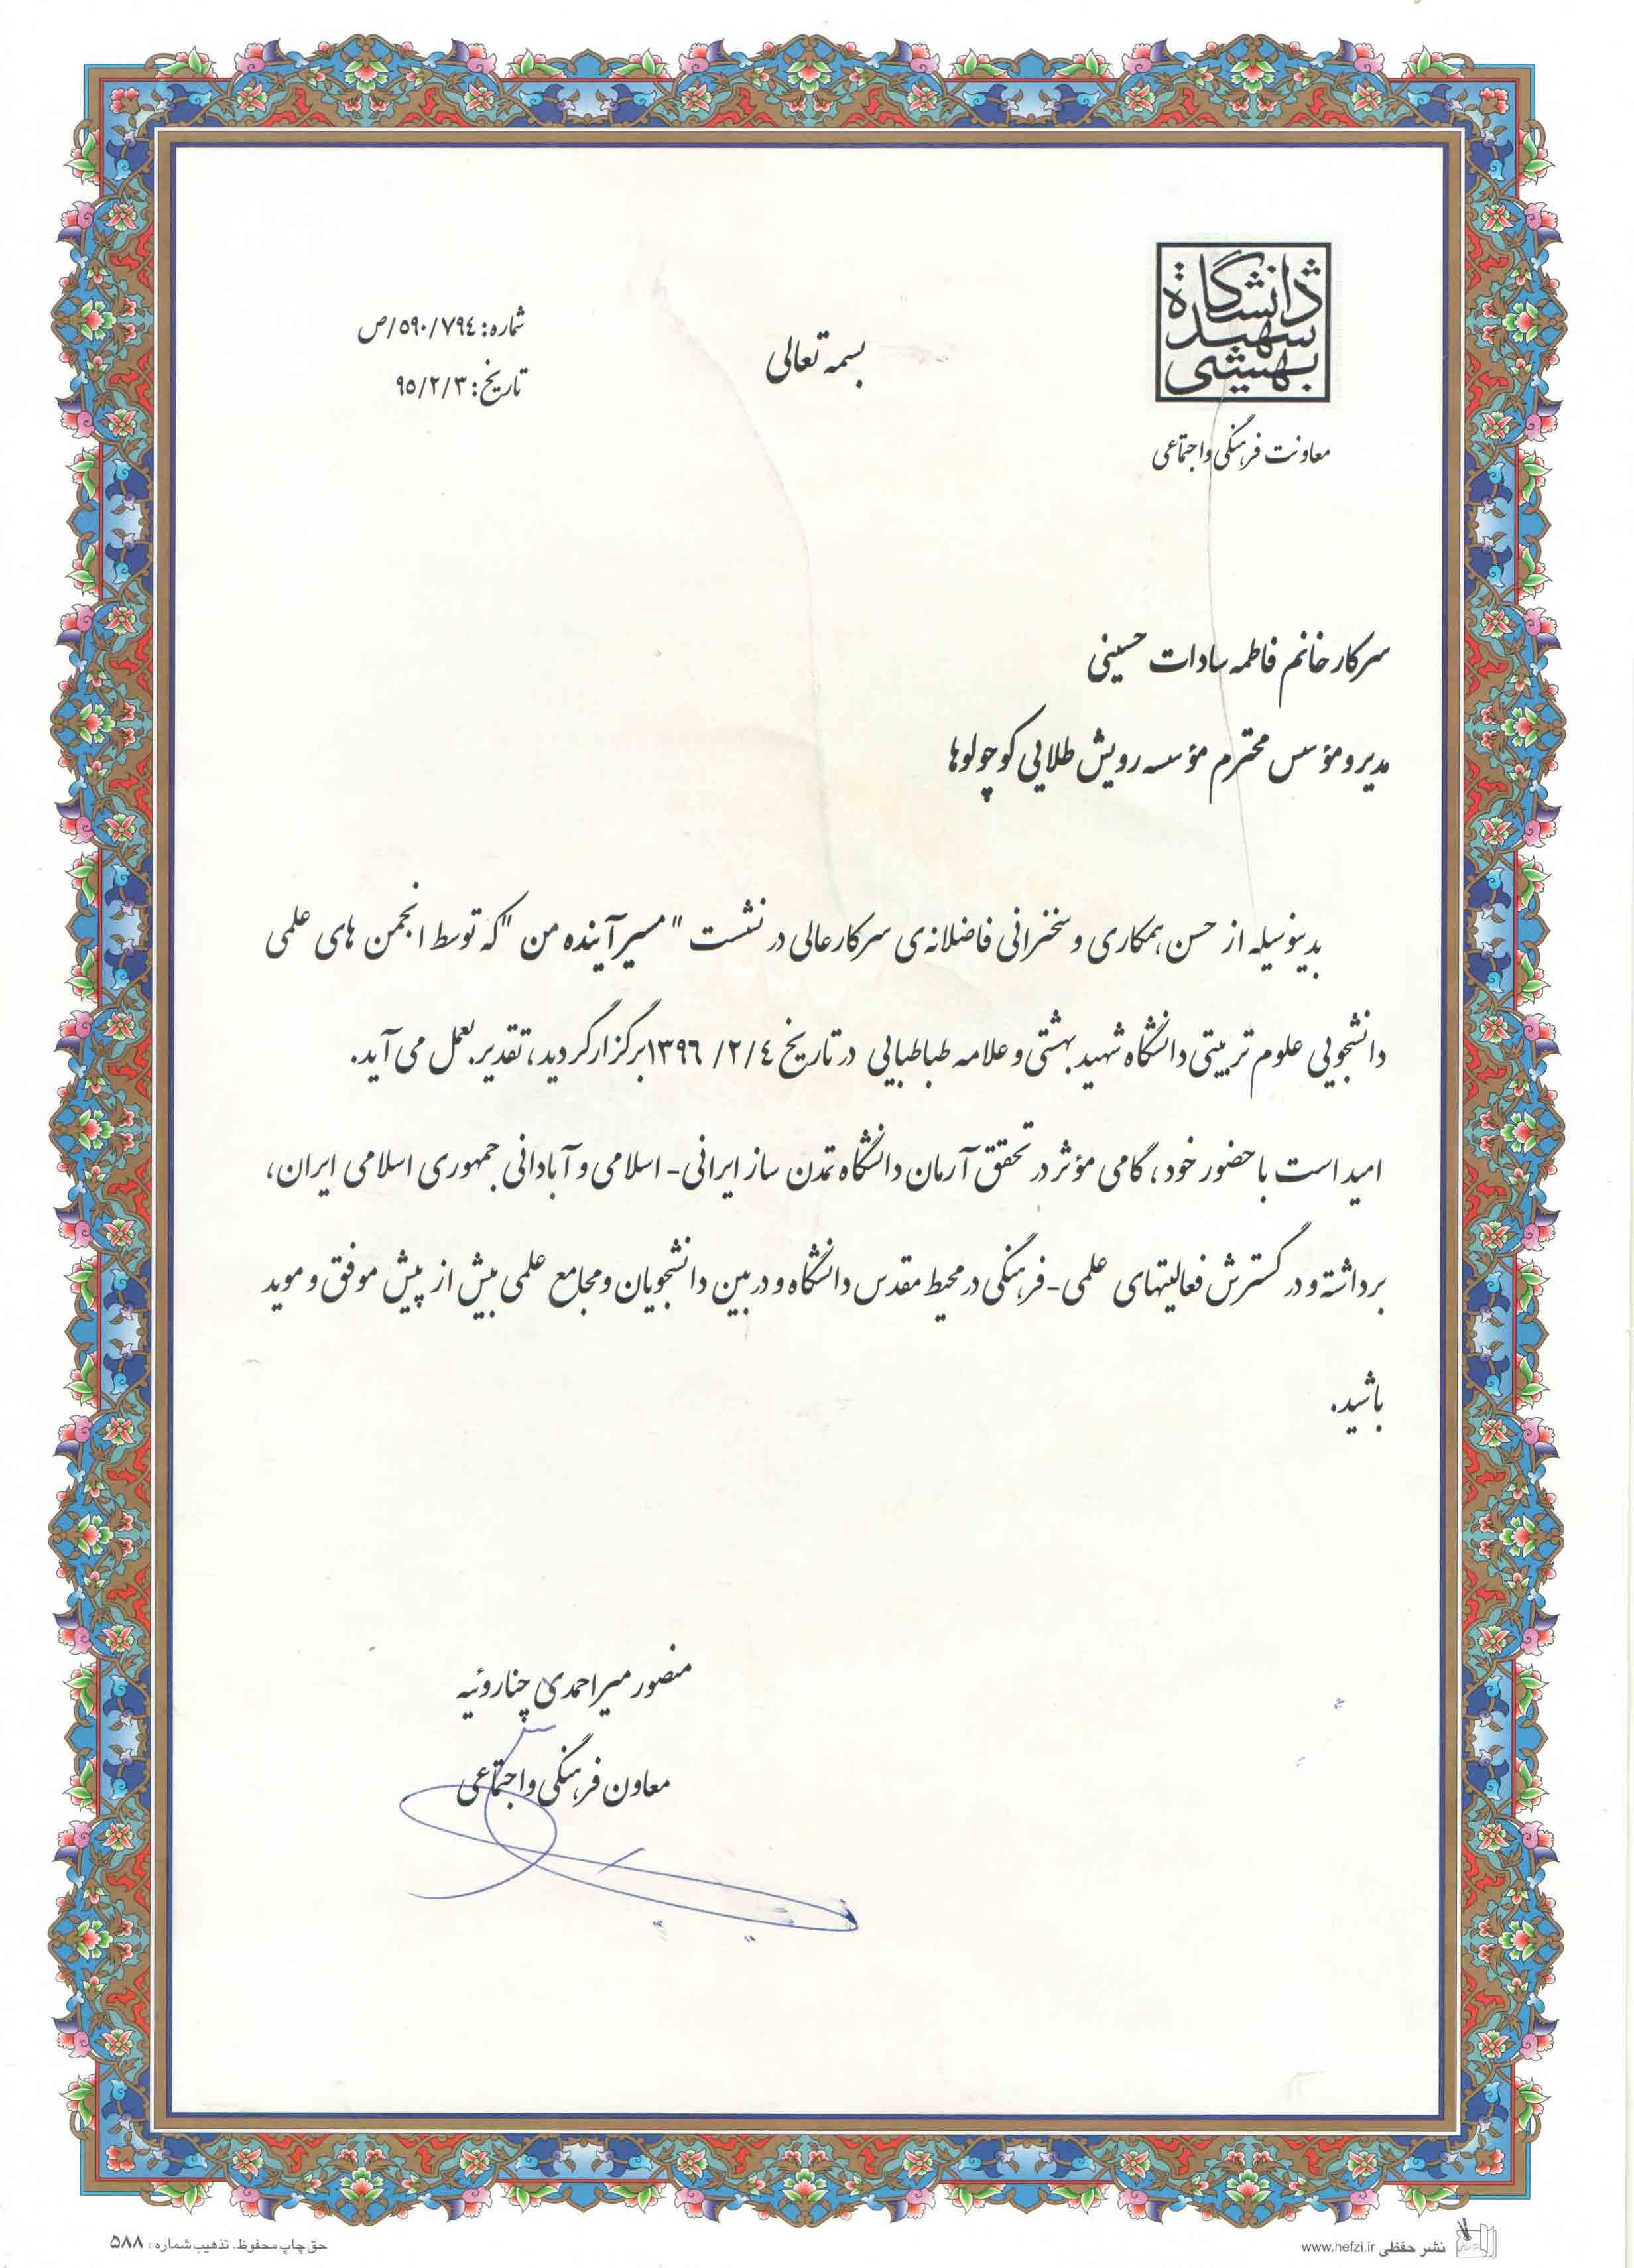 دانشگاه
شهید
بهشتی
معاونت فرهنگی و اجتماعی
بسمه تعالی
شماره: ۵۹۰/۷۹۴/ص
تاریخ: ۹۵/۲/۳
سرکار خانم فاطمه سادات حسینی
مدیر و مؤسس محترم مؤسسه رویش طلایی کوچولوها
بدینوسیله از حسن همکاری و سخنرانی فاضلانه‌ی سرکار عالی در نشست "مسیر آینده من" که توسط انجمن های علمی
دانشجویی علوم تربیتی دانشگاه شهید بهشتی و علامه طباطبایی در تاریخ ۱۳۹۶/۲/۴ برگزار گردید، تقدیر بعمل می آید.
امید است با حضور خود، گامی مؤثر در تحقق آرمان دانشگاه تمدن ساز ایرانی- اسلامی و آبادانی جمهوری اسلامی ایران،
برداشته و در گسترش فعالیتهای علمی-فرهنگی در محیط مقدس دانشگاه و در بین دانشجویان و مجامع علمی بیش از پیش موفق و موید
باشید.
منصور میراحمدی چناروئیه
معاون فرهنگی و اجتماعی
نشر حفظی www.hefzi.ir
حق چاپ محفوظ. تذهیب شماره : ۵۸۸